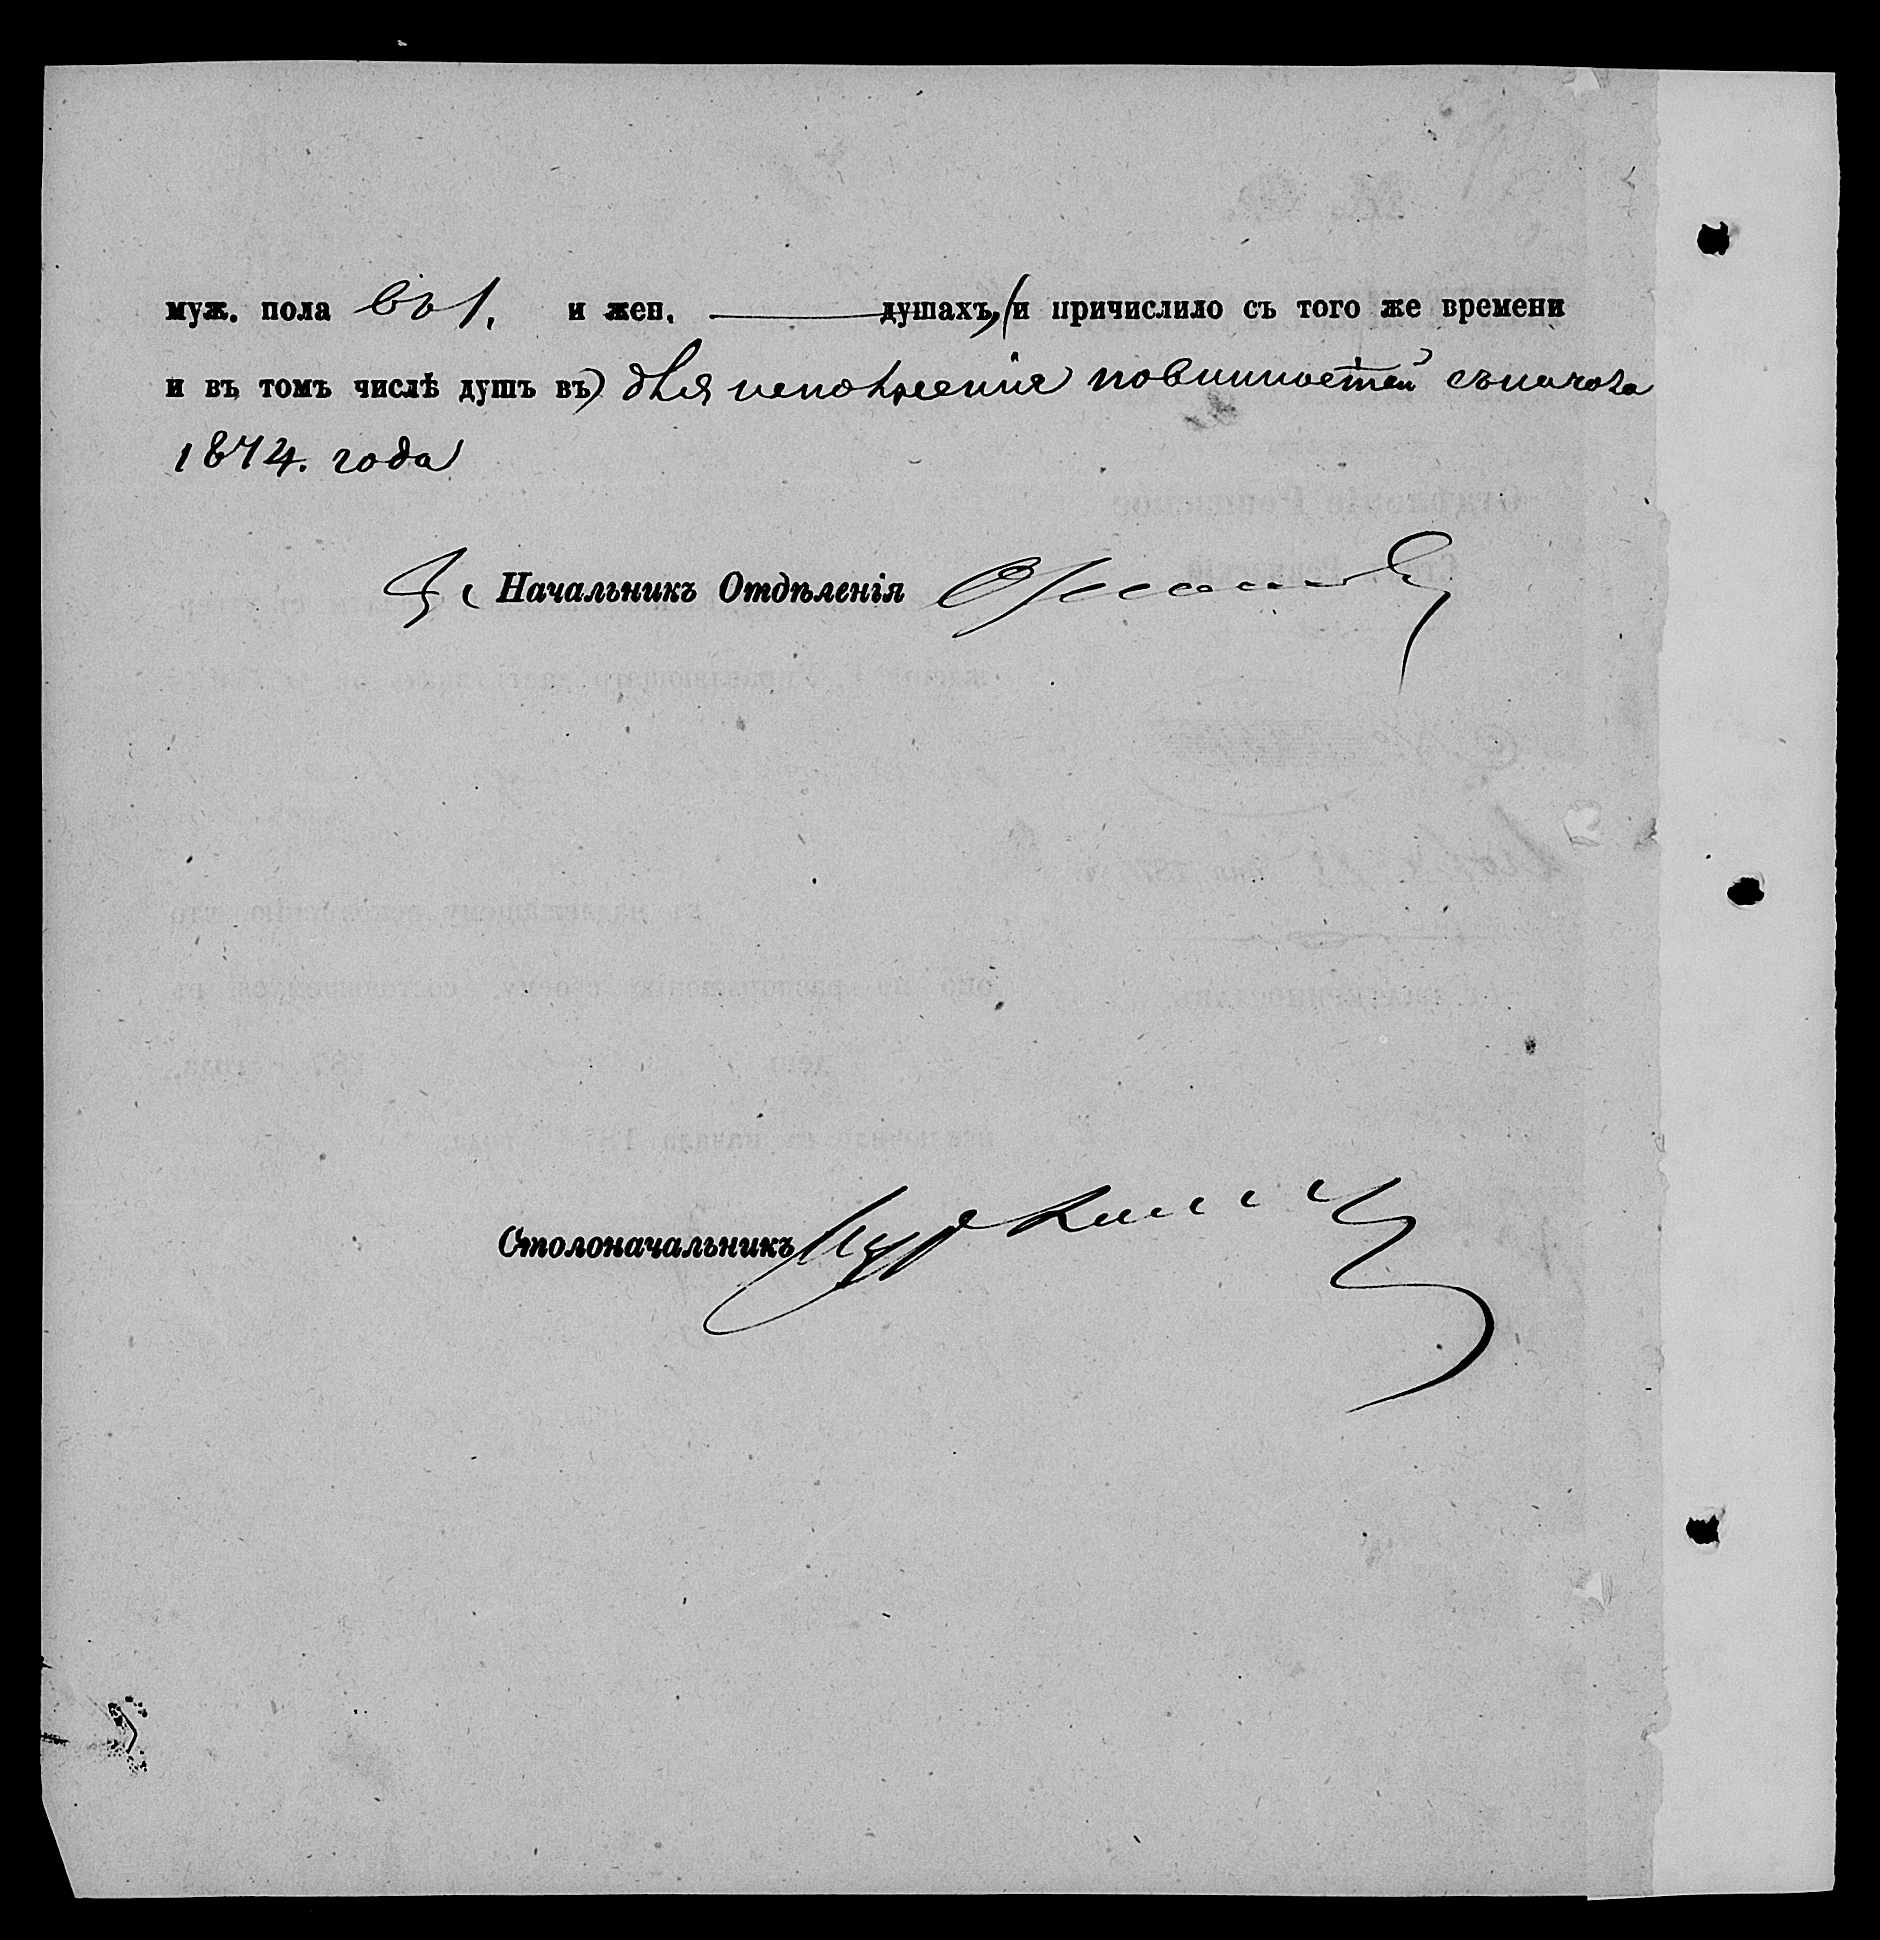 муж. пола въ 1. и жен. ——— душахъ, (и причислило съ того же времени
и въ томъ числѣ душъ въ) для исполненія повинностей съ начала
1874. года
Начальникъ Отдѣленія
Столоначальникъ